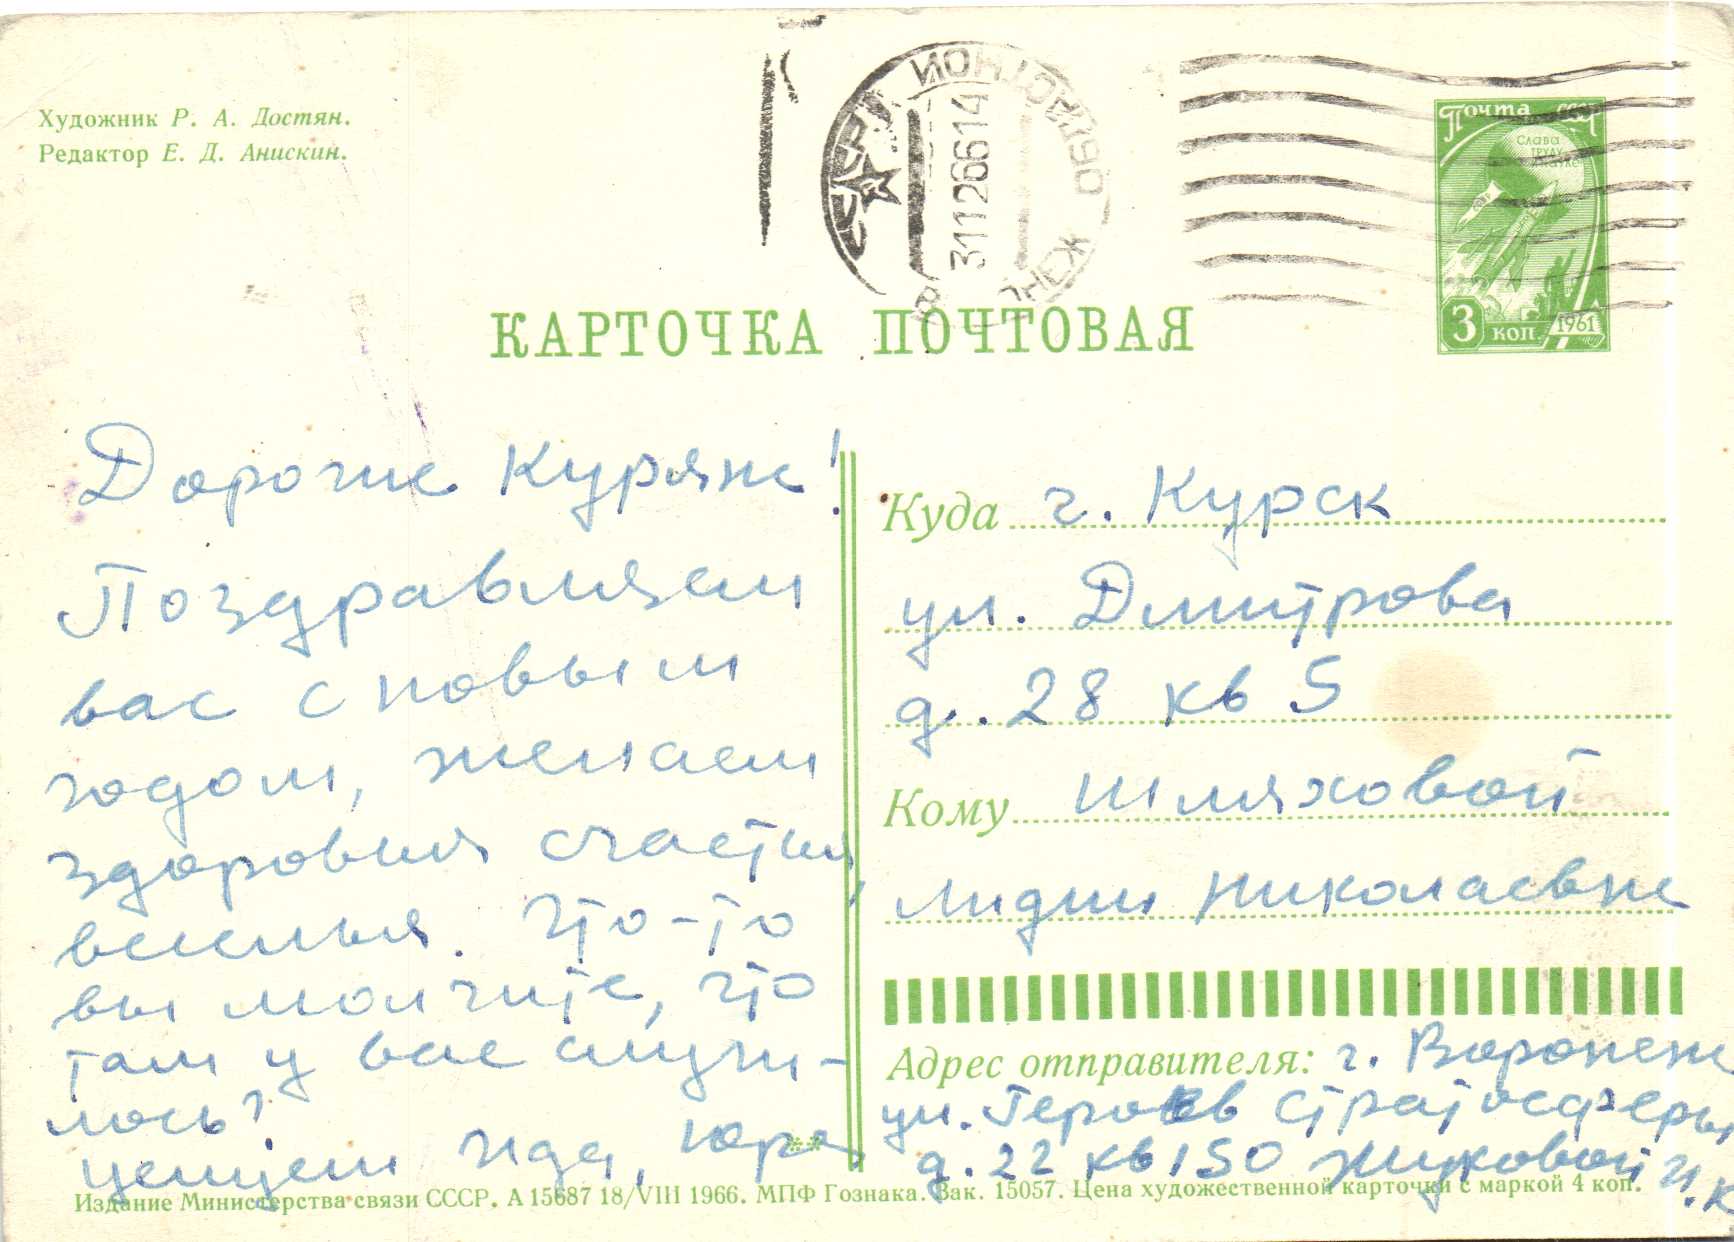 Художник Р. А. Достян.
Редактор Е. Д. Анискин.
СССР
ОБЛАСТНОЙ
31126614
Почта СССР
Слава
труду
науке
3 коп. 1961
КАРТОЧКА ПОЧТОВАЯ
Дорогие Куряне!
Поздравляем
вас с новым
годом, желаем
здоровия счастия,
веселья. Что-то
вы молчите, что
там у вас случи-
лось?
целуем Ида, Юра
Куда г. Курск
ул. Дмитрова
д. 28 кв 5
Кому Шляховой
Лидии Николаевне
Адрес отправителя: г. Воронеж
ул. Героев стратосферы
д. 22 кв 150 Жуковой И. К
Издание Министерства связи СССР. А 15687 18/VIII 1966. МПФ Гознака. Зак. 15057. Цена художественной карточки с маркой 4 коп.